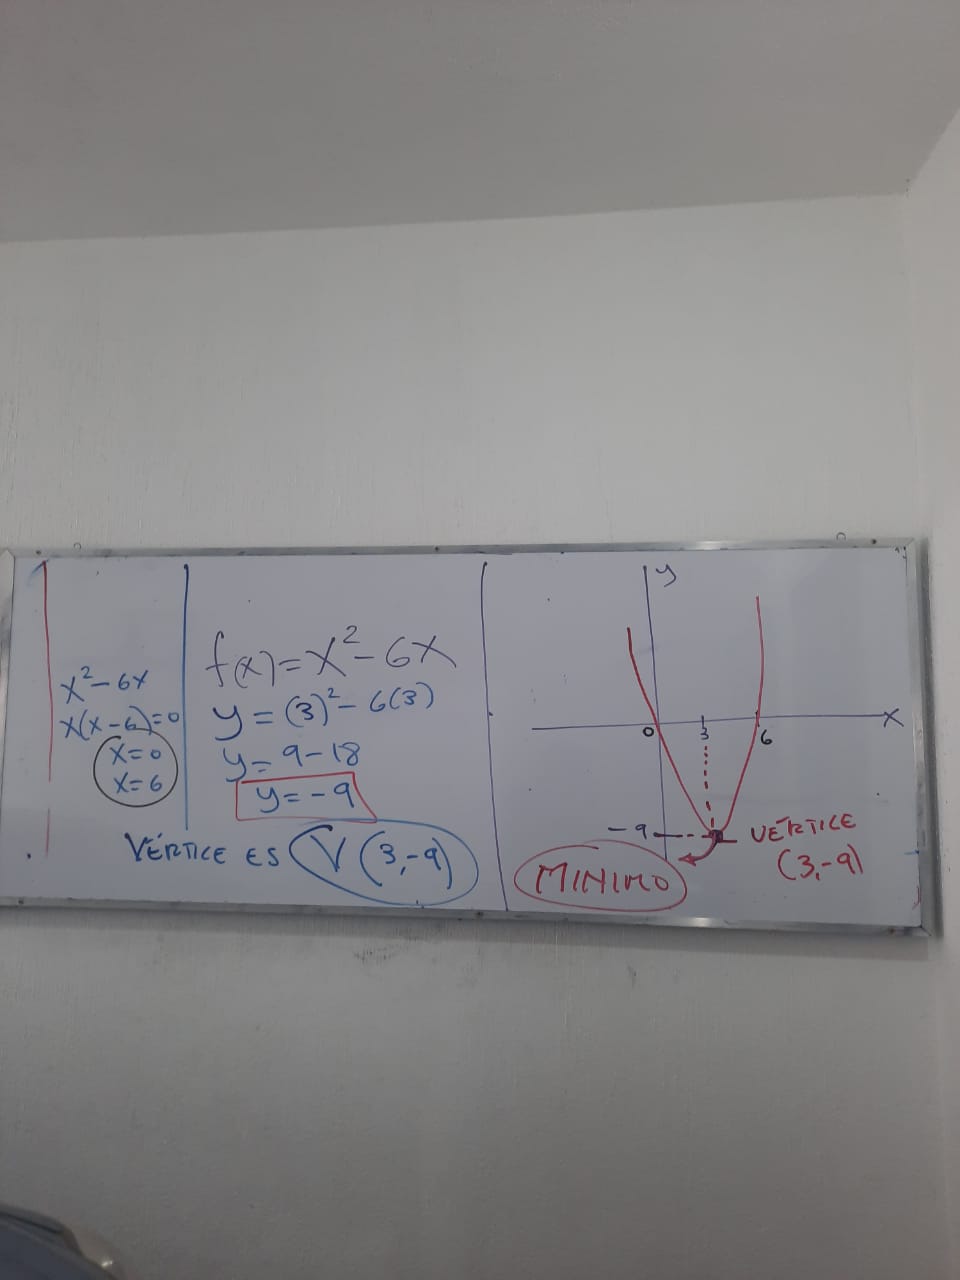 x²-6x
x(x-6)=0
x=0
x=6
f(x)=x²-6x
y=(3)²-6(3)
y=9-18
y=-9
VÉRTICE ES V(3,-9)
y
x
0
3
6
-9
VÉRTICE
(3,-9)
MINIMO